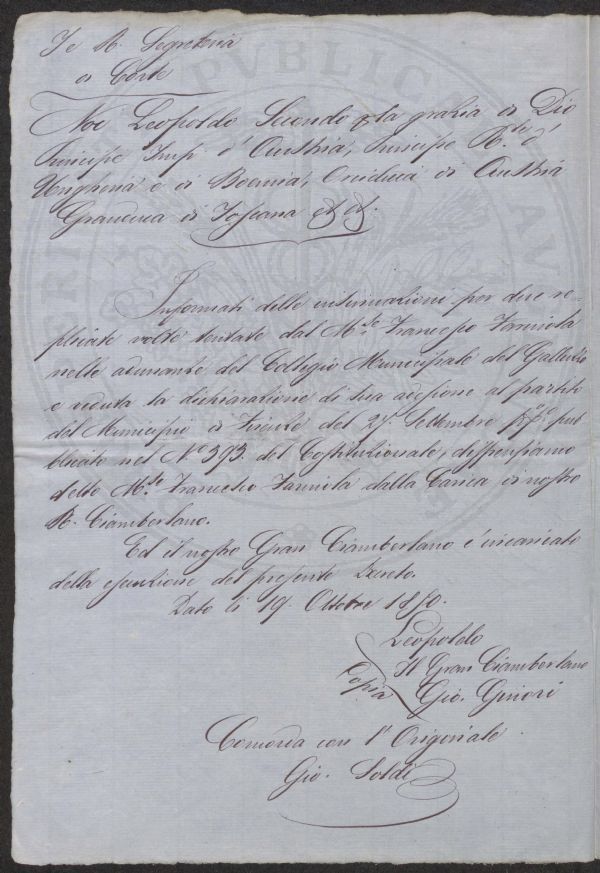 I e R. Segreteria
di Corte
Noi Leopoldo Secondo per la grazia di Dio
Principe Imp. d'Austria, Principe R.le d'
Ungheria e di Boemia, Arciduca di Austria
Granduca di Toscana &. &.
Informati delle intimazioni per due re-
plicate volte tentate dal M.se Francesco Farinola
nelle adunanze del Collegio Municipale del Galluzzo
e veduta la dichiarazione di sua adesione al partito
del Municipio di Firenze del 27. Settembre p.o p.o pub
blicato nel N.o 393. del Costituzionale, dispensiamo
detto M.se Francesco Farinola dalla Carica di nostro
R. Ciamberlano.
Ed il nostro Gran Ciamberlano è incaricato
della esecuzione del presente Decreto.
Dato li 19. Ottobre 1850.
Leopoldo
Copia Il Gran Ciamberlano
Gio. Ginori
Concorda con l'Originale
Gio. Soldi